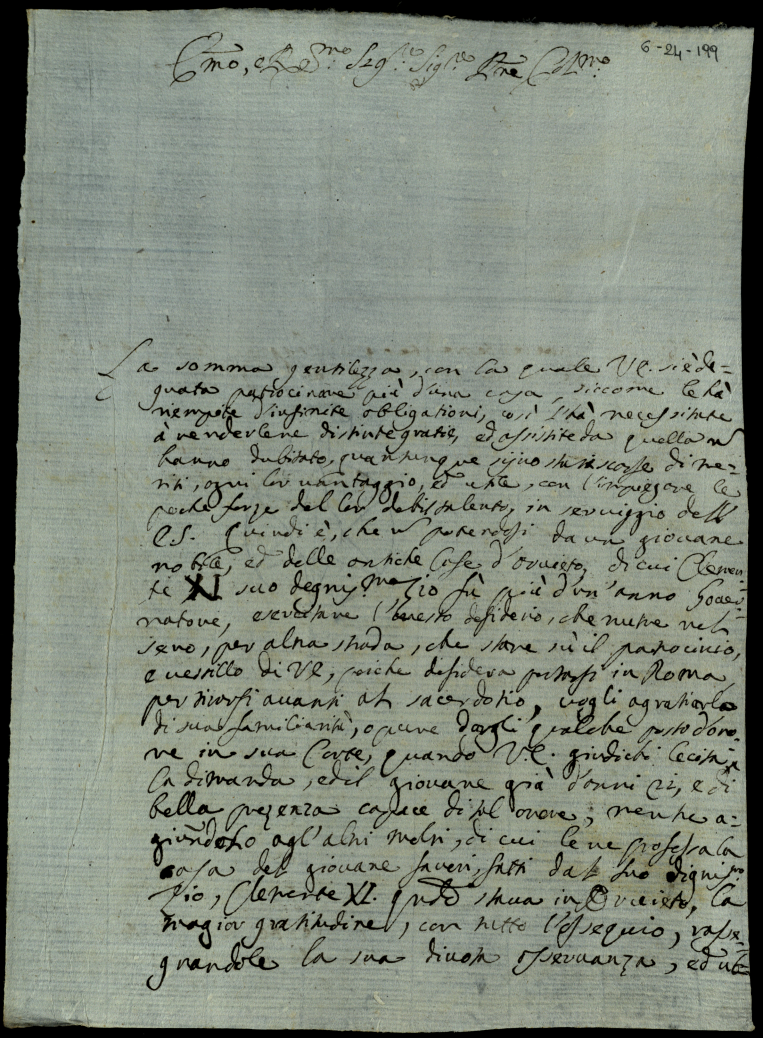 6-24-199
Emo, e Re^mo Sig.^re Sig.^re Pne Col^mo
La somma gentilezza, con la quale V.E. si è de=
gnata patrocinare più d'una casa, siccome le hà
riempite d'infinite obligationi, così l'hà necessitate
à renderlene distinte gratie, ed assistite da quella nō
hanno dubitato, quantunque sijno scarse di me=
riti, ogni lor vantaggio, ed utile, con l'impiegare le
poche forze del lor debil talento, in servigio dell'
E.S. Quindi è, che nō potendosi da un giovane
nobile, ed delle antiche Case d'Orvieto, di cui Clemen=
te XI suo degnis^mo Zio fù più d'un'anno Gover=
natore, esercitare l'onesto desiderio, che nutre nel
seno, per altra strada, che stare sù il patrocinio,
e vessillo di VE, poiche desidera portarsi in Roma
per tirarsi avanti al sacerdotio, vogli agratiarlo
di sua familiarità, o pure dargli qualche posto d'ono=
re in sua Corte, quando V.E. giudichi lecita
la dimanda, ed il giovane già d'anni 21, e di
bella prezenza capace di tal onore; mentre a=
giūndeto agl'altri molti, di cui le ne professa la
casa del giovane favori, fatti dal suo dignis^mo
Zio, Clemente XI. qndo stava in Orvieto, la
magior gratitudine, con tutto l'ossequio, rasse=
gnandole la sua divota osservanza, ed ub=